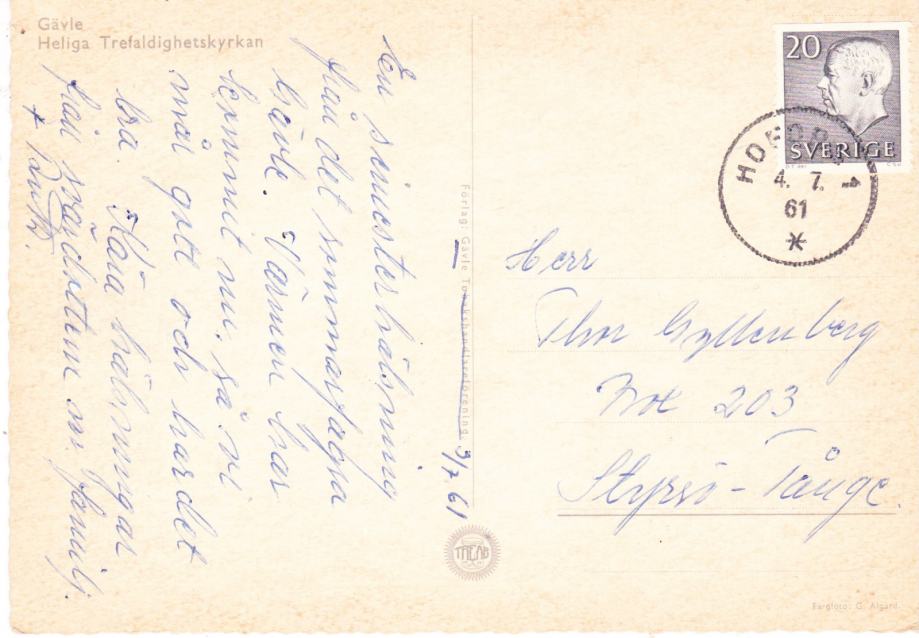 Gävle
Heliga Trefaldighetskyrkan
3/7. 61
En semesterhälsning
från det sommarfagra
Gävle. Värmen har
kommit nu, så vi
mår gott och har det
bra. Kära hälsningar
från m. familj.
Förlag: Gävle Tobakshandlareförening.
20
SVERIGE
HOFORS 1
4. 7.
61
Herr
Thor Gyllenberg
Box 203
Styrsö - Tånge.
Färgfoto: G. Algård